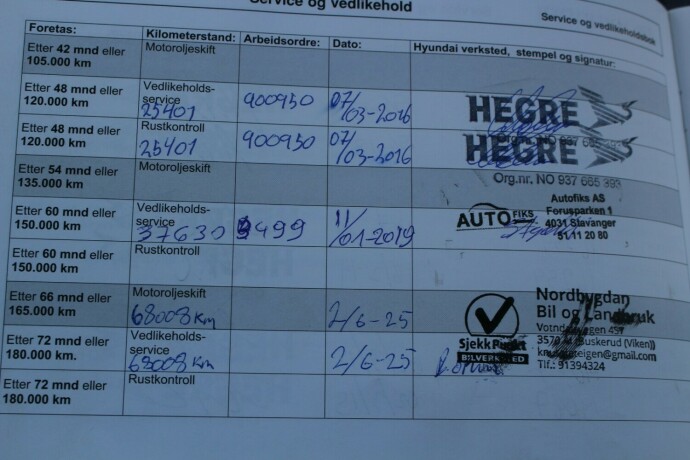 Service og vedlikehold
Service og vedlikeholdsbok
Foretas: Kilometerstand: Arbeidsordre: Dato: Hyundai verksted, stempel og signatur:
Etter 42 mnd eller Motoroljeskift
105.000 km
Etter 48 mnd eller Vedlikeholds-
120.000 km service
25401 900950 07/03-2016 HEGRE
Etter 48 mnd eller Rustkontroll
120.000 km 25401 900950 07/03-2016 HEGRE
Org.nr. NO 937 665 393
Etter 54 mnd eller Motoroljeskift
135.000 km
Org.nr. NO 937 665 393
Etter 60 mnd eller Vedlikeholds-
150.000 km service
37630 9499 11/01-2019
AUTOFIKS
Autofiks AS
Forusparken 1
4031 Stavanger
51 11 20 80
Etter 60 mnd eller Rustkontroll
150.000 km
Etter 66 mnd eller Motoroljeskift
165.000 km 68008 km 2/6-25
Etter 72 mnd eller Vedlikeholds-
180.000 km. service
68008 km 2/6-25
SjekkPunkt
BILVERKSTED
Nordbygdan
Bil og Landbruk
3570 Buskerud (Viken))
Tlf.: 91394324
Etter 72 mnd eller Rustkontroll
180.000 km